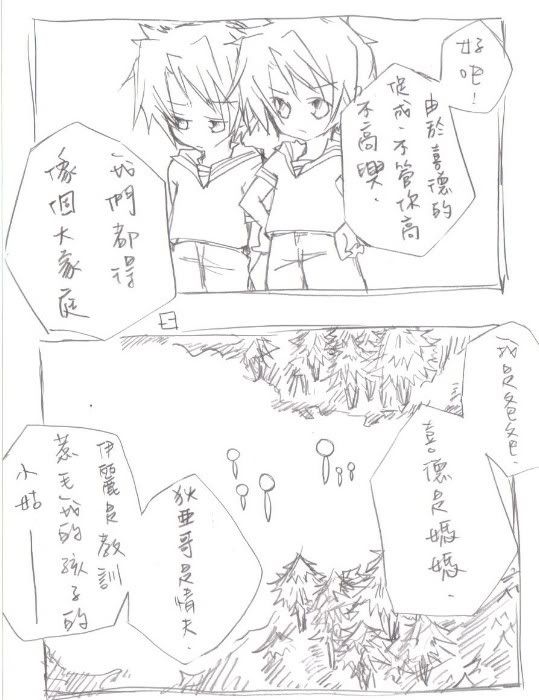 好吧！
由於喜德的
促成、不管你高
不高興、
我們都得
像個大家庭
我是爸爸、
喜德是媽媽、
狄亞哥是情夫、
伊麗是教訓
惹毛我的孩子的
小姑——